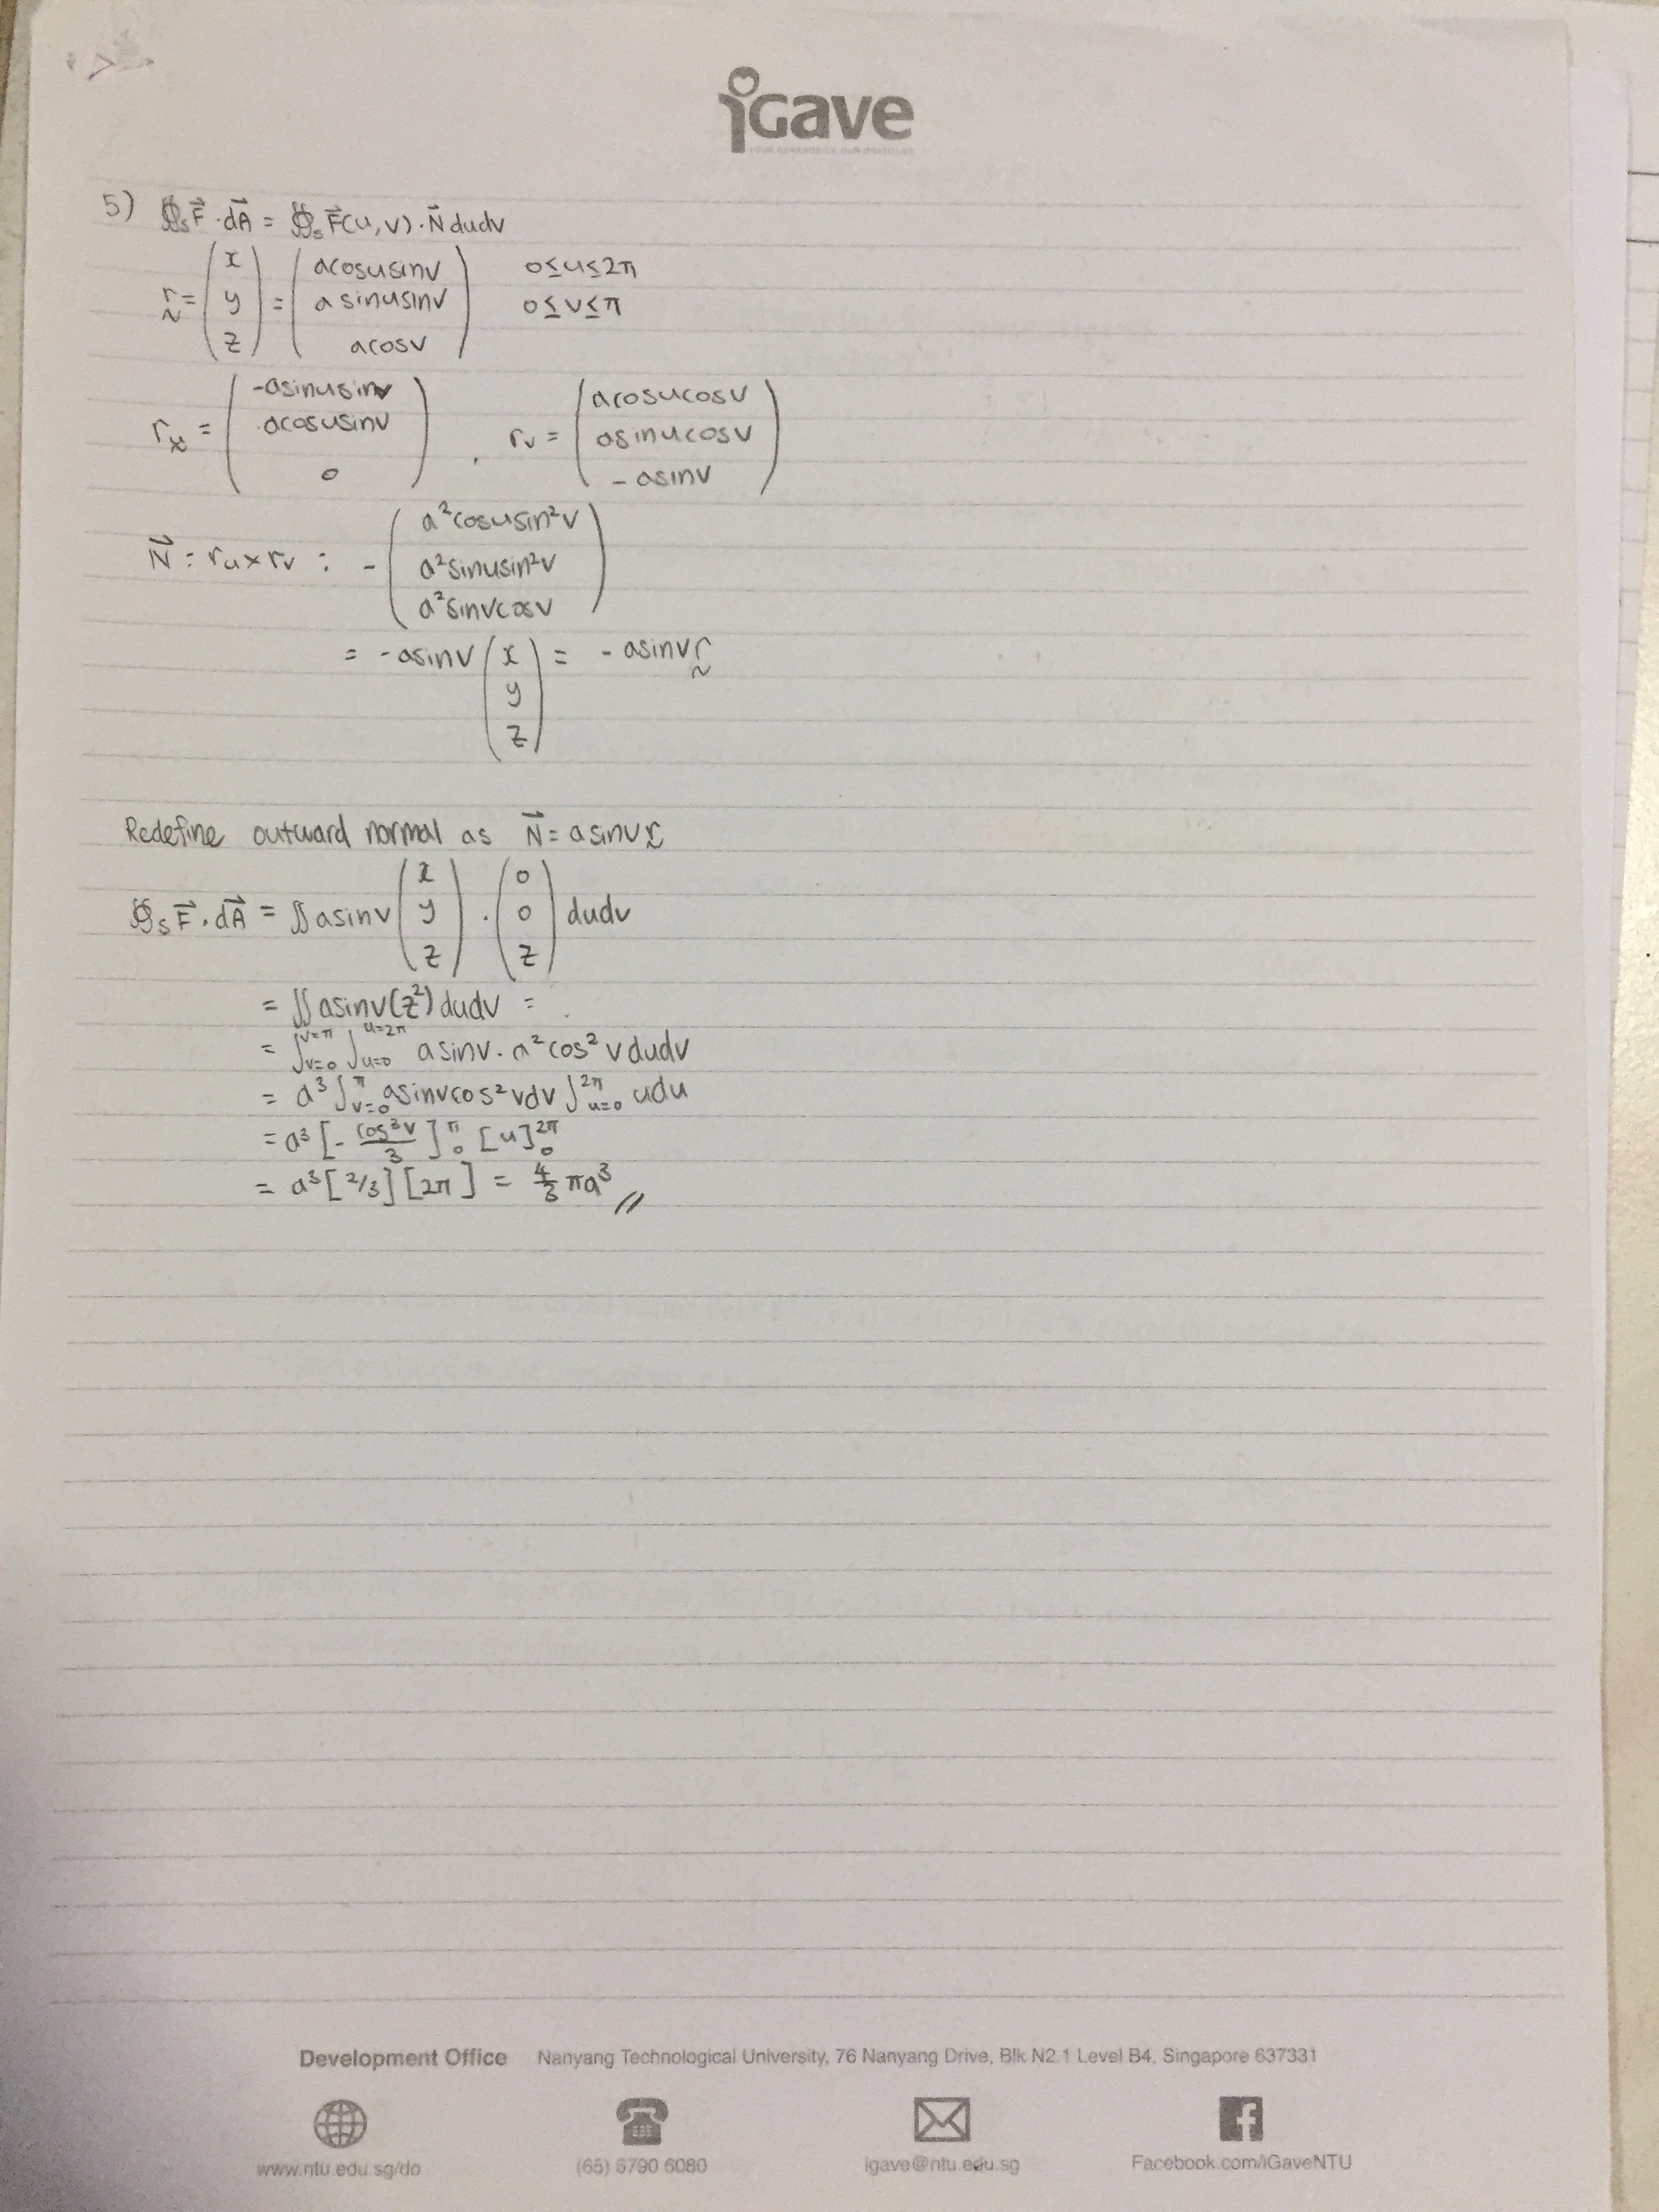 iGave
YOUR GENEROSITY, OUR GRATITUDE
5) ∯s F⃗ · dA⃗ = ∯s F⃗(u,v) · N⃗ dudv
r = (x y z) = (acosusinv asinusinv acosv) 0≤u≤2π 0≤v≤π
r_u = (-asinusinv acosusinv 0), r_v = (acosucosv asinucosv -asinv)
N⃗ = r_u × r_v : -(a²cosusin²v a²sinusin²v a²sinvcosv)
= -asinv (x y z) = -asinv r
Redefine outward normal as N⃗ = asinv r
∯s F⃗ · dA⃗ = ∬ asinv (x y z) · (0 0 z) dudv
= ∬ asinv(z²) dudv =
= ∫_{v=0}^{v=π} ∫_{u=0}^{u=2π} asinv · a²cos²v dudv
= a³ ∫_{v=0}^{π} asinvcos²vdv ∫_{u=0}^{2π} udu
= a³ [-cos³v/3]_0^π [u]_0^{2π}
= a³ [2/3] [2π] = 4/3 πa³ //
Development Office Nanyang Technological University, 76 Nanyang Drive, Blk N2.1 Level B4, Singapore 637331
www.ntu.edu.sg/do (65) 6790 6080 igave@ntu.edu.sg Facebook.com/iGaveNTU